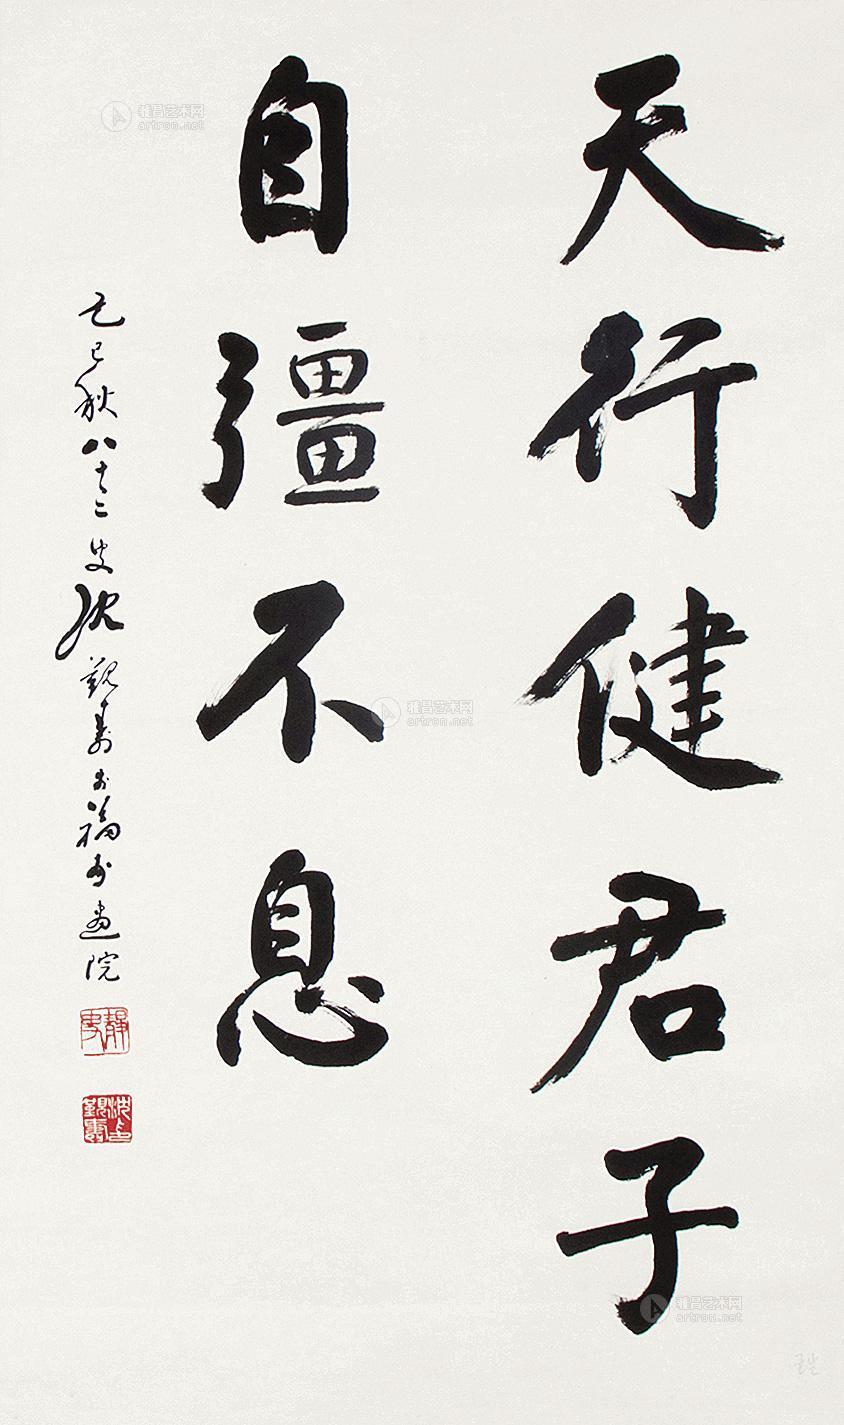 天行健君子
自彊不息
己巳秋八十二叟沈觐寿书福州画院
静叟
沈觐寿印
雅昌艺术网
artron.net
雅昌艺术网
artron.net
雅昌艺术网
artron.net